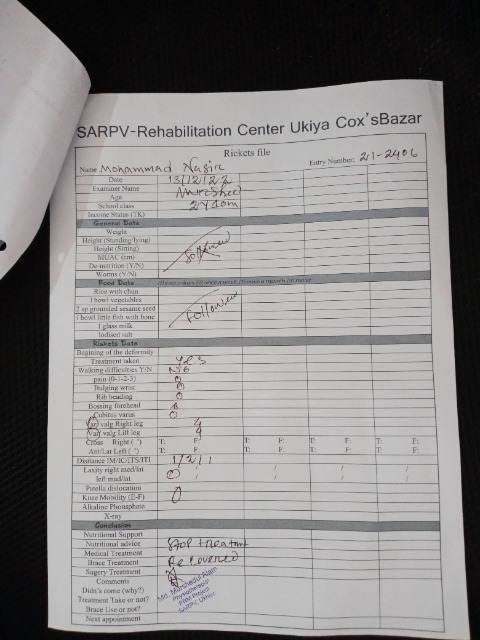 SARPV-Rehabilitation Center Ukiya Cox'sBazar
Rickets file
Name Mohammad Nasir Entry Number: 21-2406
Date 13/12/22
Examiner Name Murshed
Age 2Y10m
School class
Income Status (TK)
General Data
Weight
Height (Standing/lying)
Height (Sitting)
MUAC (cm)
De-nutrition (Y/N)
Worms (Y/N)
Food Data
Rice with chun
1 bowl vegetables
2 sp grounded sesame seed
1 bowl little fish with bone Followed
1 glass milk
Iodised salt
Rickets Data
Begining of the deformity
Treatment taken Yes
Walking difficulties Y/N No
pain (0-1-2-3) 0
Bulging wrist 0
Rib beading 0
Bossing forehead
Cubitus varus 0
Var/ valg Right leg 4
Var/ valg Lift leg 4
Cross Right ( °) T: F: T: F: T: F: T: F:
Ant/Lat Left ( °) T: F: T: F: T: F: T: F:
Distance IM/IC/ITS/ITI 1/2/1
Laxity right med/lat 0 / / /
left mad/lat / / / /
Patella dislocation
Knee Mobility (E-F) 0
Alkaline Phosphate
X-ray
Conclusion
Nutritional Support
Nutritional advice Stop treatmt
Medical Treatment
Brace Treatment Recovered
Sugery Treatment
Comments
Didn't come (why?)
Treatment Take or not?
Brace Use or not?
Next appointment
Md. Murshedul Alam
Physiotherapist
SARPV, Ukhiya